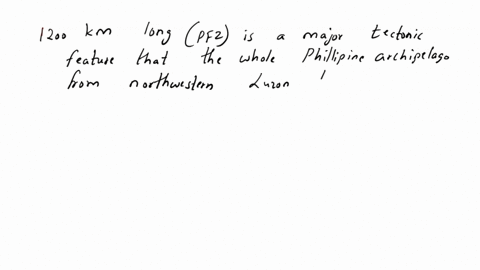 1200 km long (PFZ) is a major tectonic
feature that the whole Phillipine archipelago
from northwestern Luzon